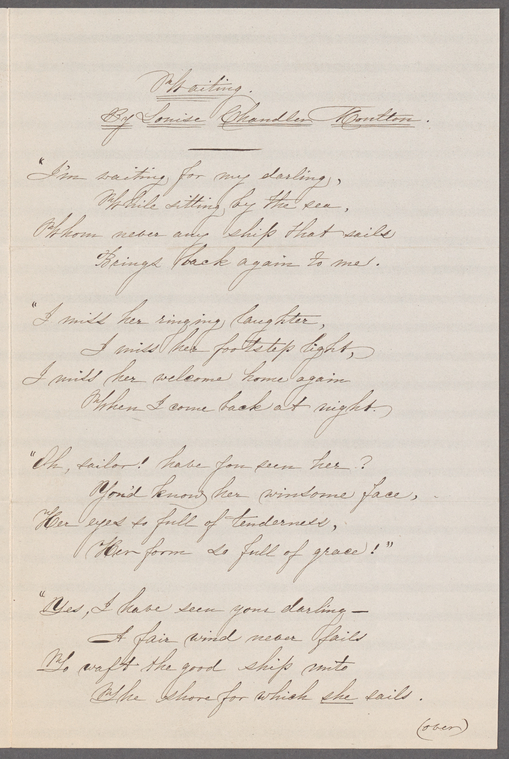 Waiting.
By Louise Chandler Moulton.
"I'm waiting for my darling,
While sitting by the sea,
Whom never any ship that sails
Brings back again to me.
"I miss her ringing laughter,
I miss her footstep light,
I miss her welcome home again
When I come back at night.
"Oh, sailor! have you seen her?
You'd know her winsome face,
Her eyes so full of tenderness,
Her form so full of grace!"
"Yes, I have seen your darling—
A fair wind never fails
To waft the good ship unto
The shore for which she sails.
(over)